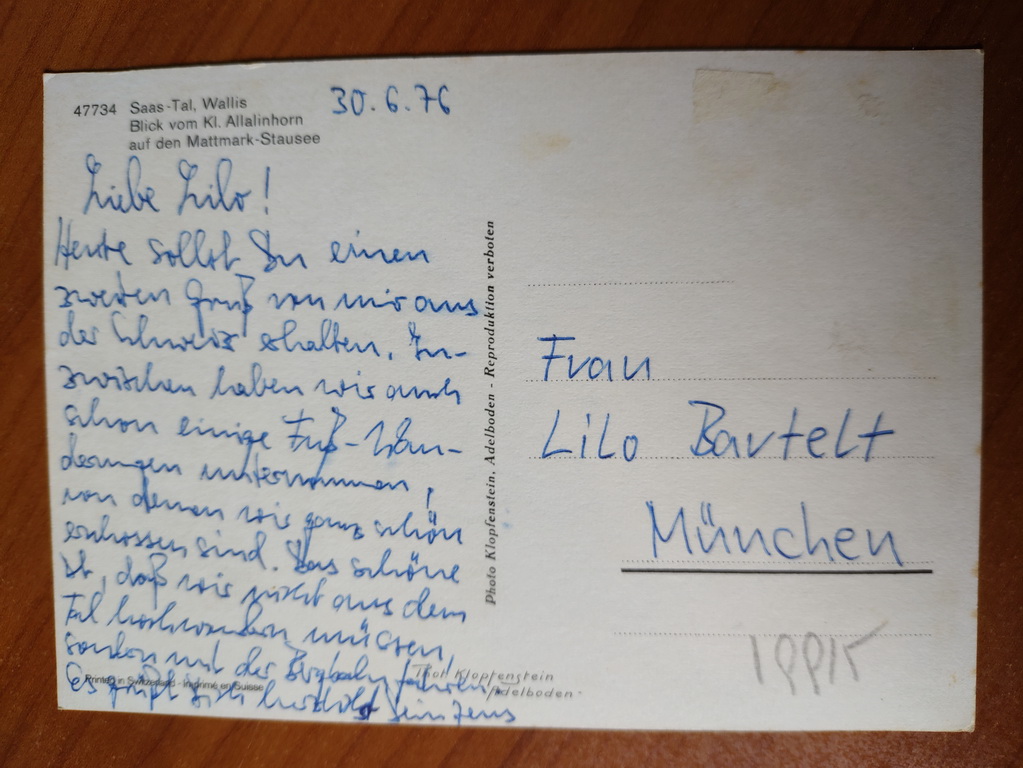 47734 Saas-Tal, Wallis
Blick vom Kl. Allalinhorn
auf den Mattmark-Stausee
30.6.76
Liebe Lilo!
Heute sollst Du einen
zweiten Gruß von mir aus
der Schweiz erhalten. In-
zwischen haben wir auch
schon einige Fuß-Wan-
derungen unternommen,
von denen wir ganz schön
erschossen sind. Das schöne
ist, daß wir nicht aus dem
Tal hochwandern müssen,
sondern mit der Bergbahn fahren.
Es grüßt Dich herzlichst
Printed in Switzerland - Imprimé en Suisse
Photo Klopfenstein, Adelboden - Reproduktion verboten
Frau
Lilo Bartelt
München
Phot Klopfenstein
Adelboden